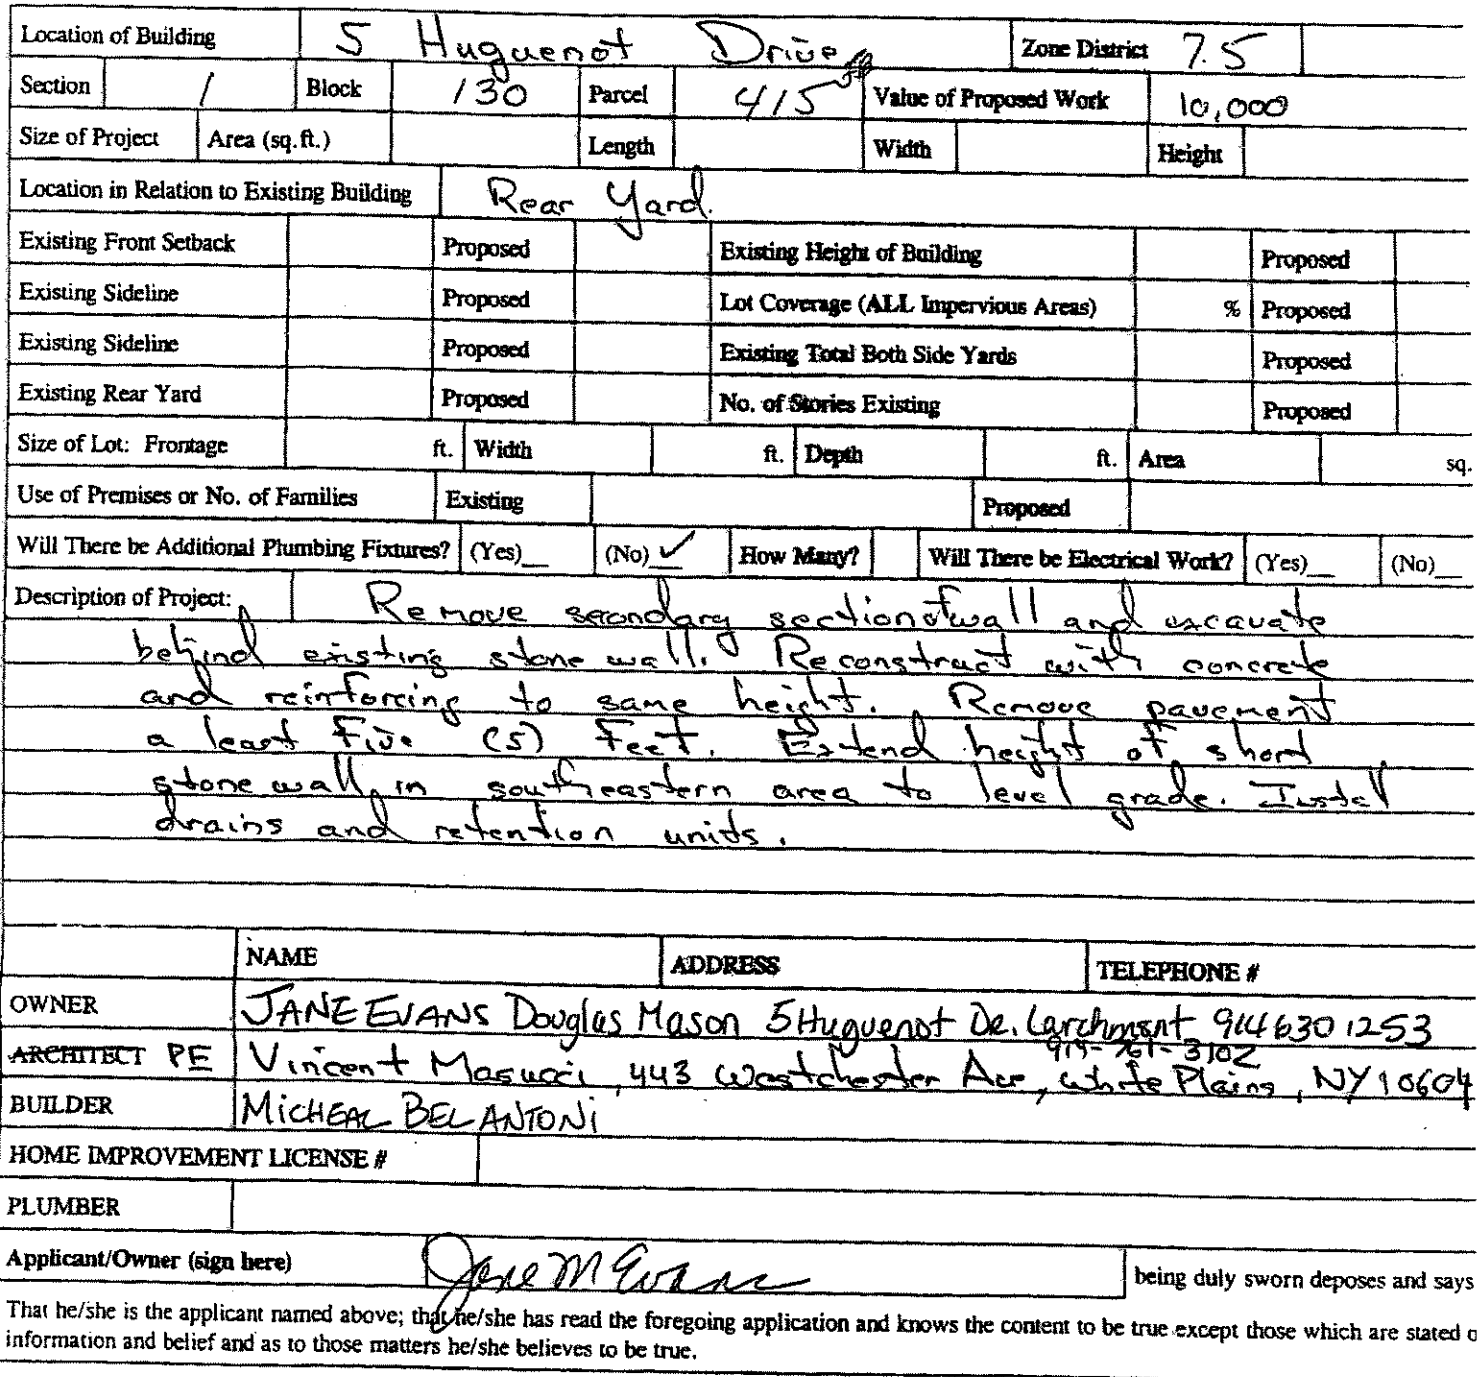 Location of Building 5 Huguenot Drive Zone District 7.5
Section 1 Block 130 Parcel 415 Value of Proposed Work 10,000
Size of Project Area (sq.ft.) Length Width Height
Location in Relation to Existing Building Rear Yard.
Existing Front Setback Proposed Existing Height of Building Proposed
Existing Sideline Proposed Lot Coverage (ALL Impervious Areas) % Proposed
Existing Sideline Proposed Existing Total Both Side Yards Proposed
Existing Rear Yard Proposed No. of Stories Existing Proposed
Size of Lot: Frontage ft. Width ft. Depth ft. Area sq.
Use of Premises or No. of Families Existing Proposed
Will There be Additional Plumbing Fixtures? (Yes)__ (No) ✓ How Many? Will There be Electrical Work? (Yes)__ (No)__
Description of Project: Remove secondary section of wall and excavate
behind existing stone wall. Reconstract with concrete
and reinforcing to same height. Remove pavement
a least Five (5) Feet. Extend height of short
stone wall in southeastern area to level grade. Instal
drains and retention units.
NAME ADDRESS TELEPHONE #
OWNER JANE EVANS Douglas Mason 5 Huguenot Dr. Larchmont 914 630 1253
914-761-3102
ARCHITECT PE Vincent Masucci, 443 Westchester Ave, White Plains, NY 10604
BUILDER MICHEAL BELANTONI
HOME IMPROVEMENT LICENSE #
PLUMBER
Applicant/Owner (sign here) Jane M Evans being duly sworn deposes and says
That he/she is the applicant named above; that he/she has read the foregoing application and knows the content to be true except those which are stated o
information and belief and as to those matters he/she believes to be true.